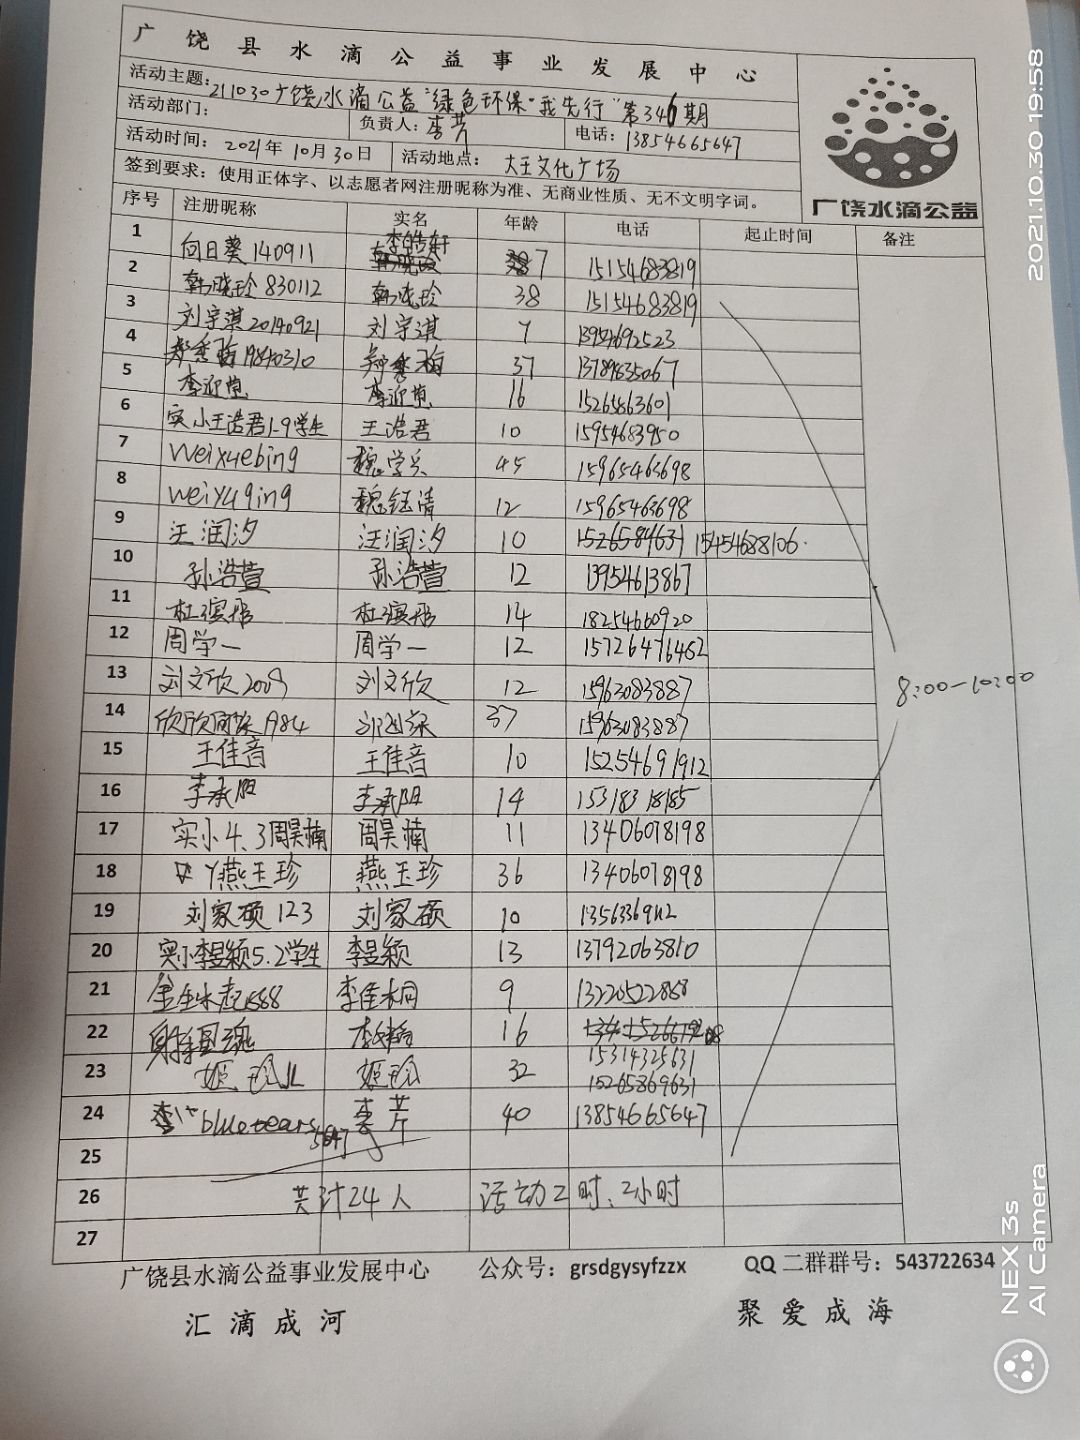 广饶县水滴公益事业发展中心
活动主题：211030广饶水滴公益"绿色环保"我先行"第346期
活动部门： 负责人：李芹 电话：13854665647
活动时间：2021年10月30日 活动地点：大王文化广场
签到要求：使用正体字、以志愿者网注册昵称为准、无商业性质、无不文明字词。
广饶水滴公益
序号 注册昵称 实名 年龄 电话 起止时间 备注
1 向日葵140911 李皓轩 7 15154683819
2 韩晓玲830112 韩晓玲 38 15154683819
3 刘宇淇20140921 刘宇淇 7
4 郑秀梅19840310 郑秀梅 37
5 李迎莹 李迎莹 16 15265863601
6 实小王浩君1-9学生 王浩君 10 15954683950
7 weixuebing 魏学兵 45 15965463698
8 weiyuqing 魏钰清 12 15965463698
9 汪润汐 汪润汐 10 15265849631 15454688106.
10 孙浩萱 孙浩萱 12 13954613867
11 14 18254660920
12 周学一 周学一 12 15726476462
13 刘文欣2009 刘文欣 12 15963083887
14 37 15963083887
15 王佳音 王佳音 10 15254691912
16 李承阳 李承阳 14 15318318185
17 实小4.3周昊楠 周昊楠 11 13406078198
18 燕玉珍 燕玉珍 36 13406078198
19 刘家硕123 刘家硕 10
20 实小李昱颖5.2学生 李昱颖 13 13792063810
21 李佳桐 9 13220522868
22 16
15314325631
23 姬玲 32 15265869631
24 bluetears5647 李芹 40 13854665647
8:00-10:00
25
26 共计24人 活动2时、2小时
27
广饶县水滴公益事业发展中心 公众号：grsdgysyfzzx QQ二群群号：543722634
汇滴成河 聚爱成海
2021.10.30 19:58
NEX 3s
AI Camera